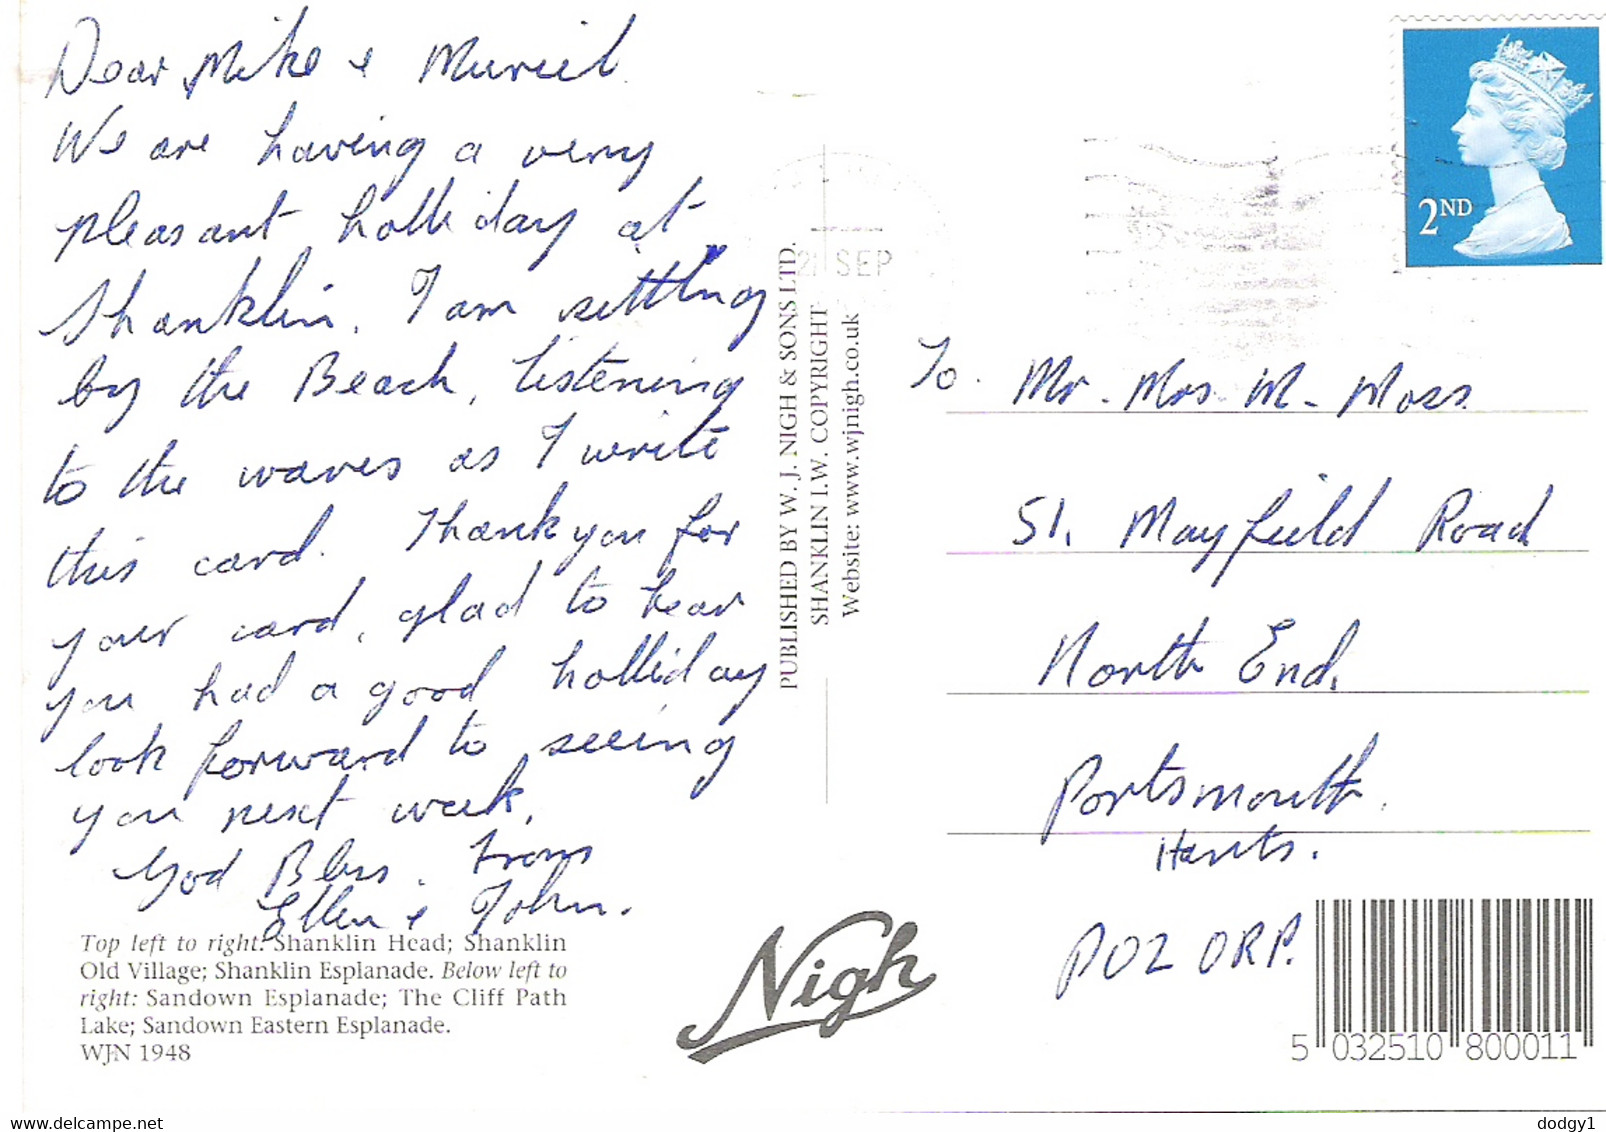 Dear Mike & Muriel
We are having a very
pleasant holliday at
Shanklin. I am sitting
by the Beach, listening
to the waves as I write
this card. Thankyou for
your card, glad to hear
you had a good holliday
look forward to seeing
you next week.
God Bless. From
Ellen & John.
Top left to right: Shanklin Head; Shanklin
Old Village; Shanklin Esplanade. Below left to
right: Sandown Esplanade; The Cliff Path
Lake; Sandown Eastern Esplanade.
WJN 1948
PUBLISHED BY W. J. NIGH & SONS LTD.
SHANKLIN I.W. COPYRIGHT
Website: www.wjnigh.co.uk
Nigh
21 SEP
2ND
To. Mr. Mrs. M. Moss
51, Mayfield Road
North End,
Portsmouth.
Hants.
PO2 0RP.
5 032510 800011
delcampe.net
dodgy1